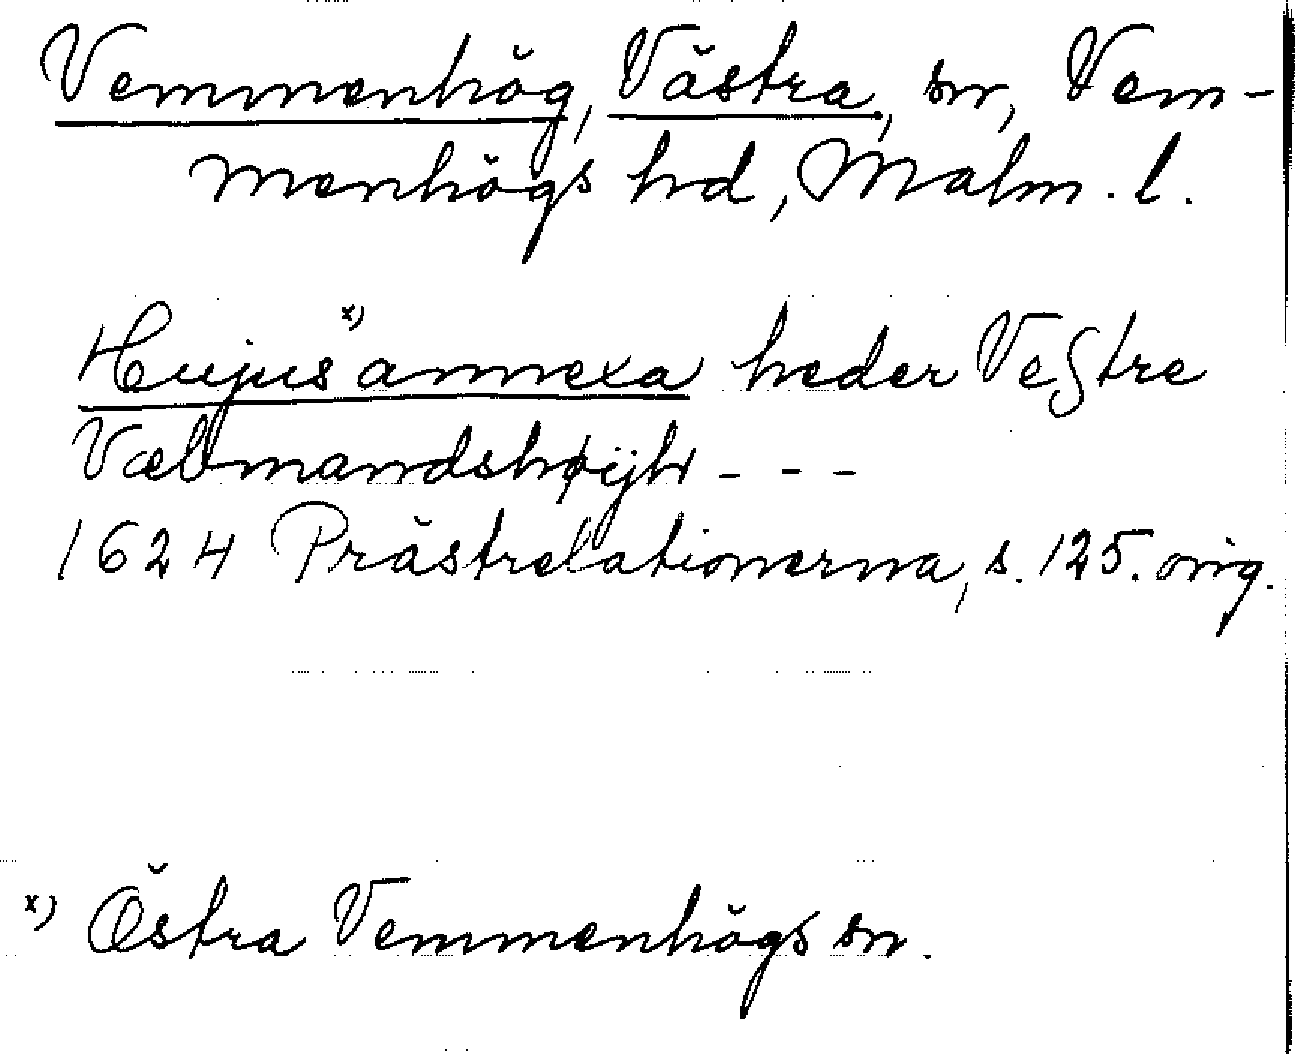 Vemmenhög, Västra, sn, Vem-
menhögs hd, Malm. l.
Hujus x) annexa heder Veßtre
Vælmandshøijh - - -
1624 Prästrelationerna, s. 125. orig.
x) Östra Vemmenhögs sn.